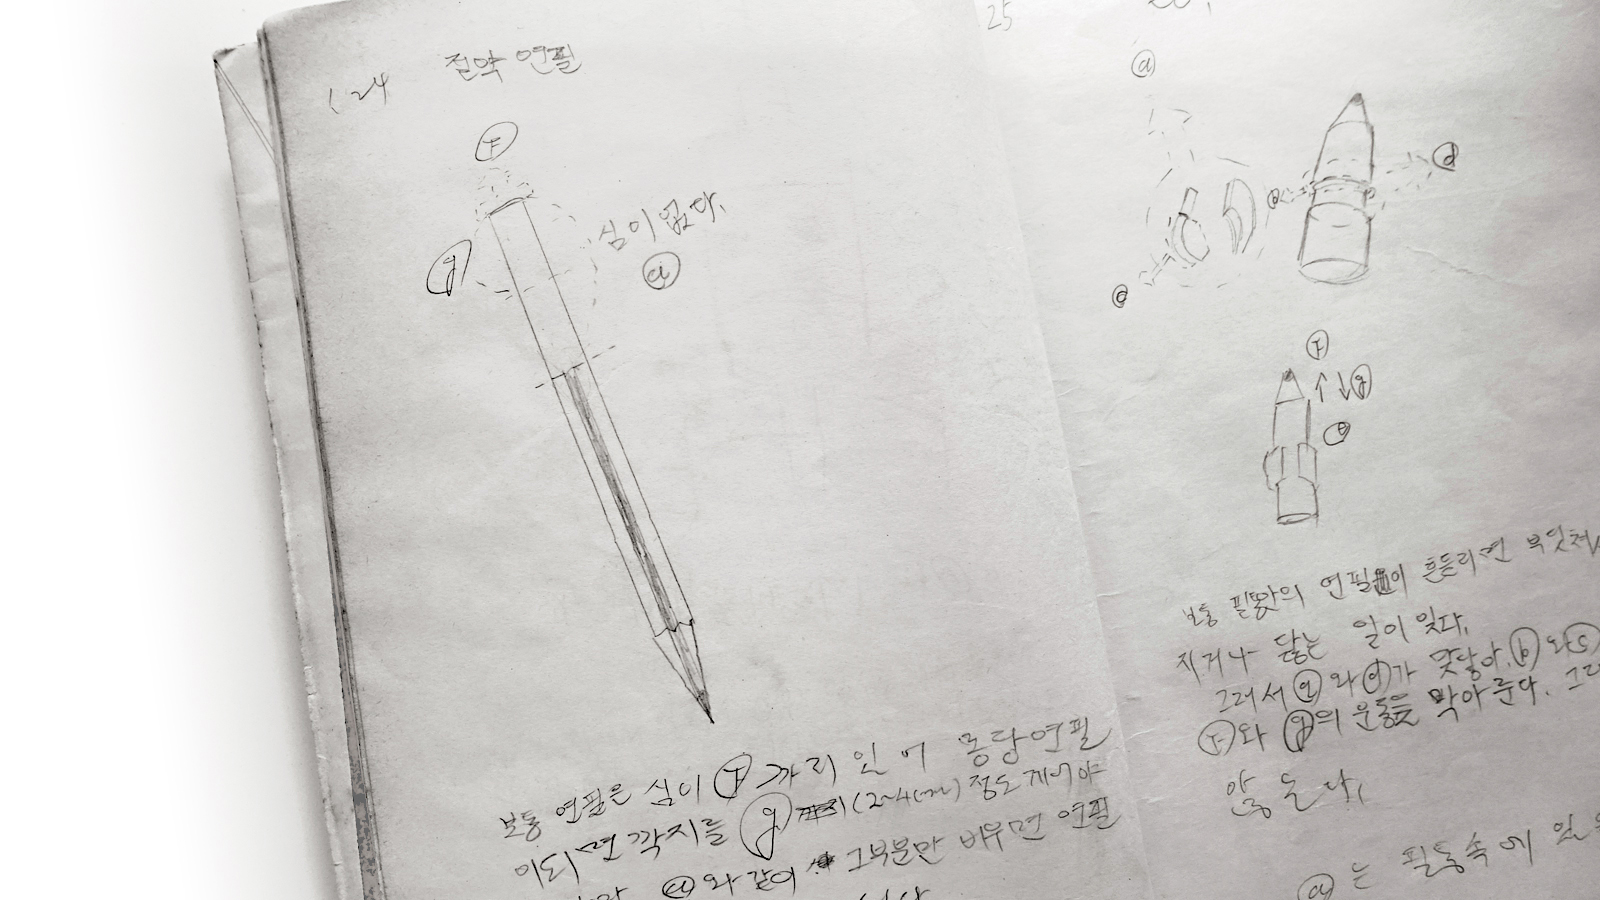 24 절약 연필
F
g
심이 없다.
a
보통 연필은 심이 F 까지 인 어 몽당연필
이되면 깍지를 g (2~4cm) 정도 게어야
a 와 같이 그부분만 비우면 연필
25
a
d
e
c
F
g
e
보통 필통안의 연필이 흔들리면 부잇처
지거나 닳는 일이 잇다.
그러서 a 와 d가 맞닿아. b 와 c
F와 g의 운동을 막아 준다. 그
않 는다.
a 는 필통속에